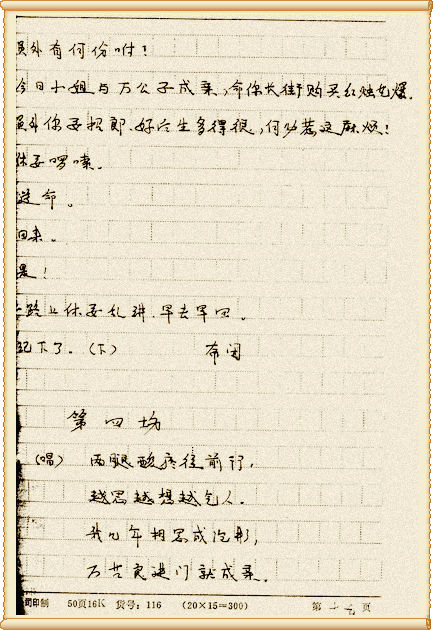 员外有何份咐！
今日小姐与万公子成亲，命你长街购买红烛花爆。
员外你要招郎、好后生多得很，何必惹这麻烦！
休要啰嗦。
遵命。
回来。
是！
路上休要乱讲、早去早回。
记下了。（下） 布闭
第四场
（唱） 两腿酸疼往前行，
越思越想越气人。
我几年相思成泡影，
万世良进门就成亲。
印制 50页16K 货号：116 （20×15=300） 第十 页